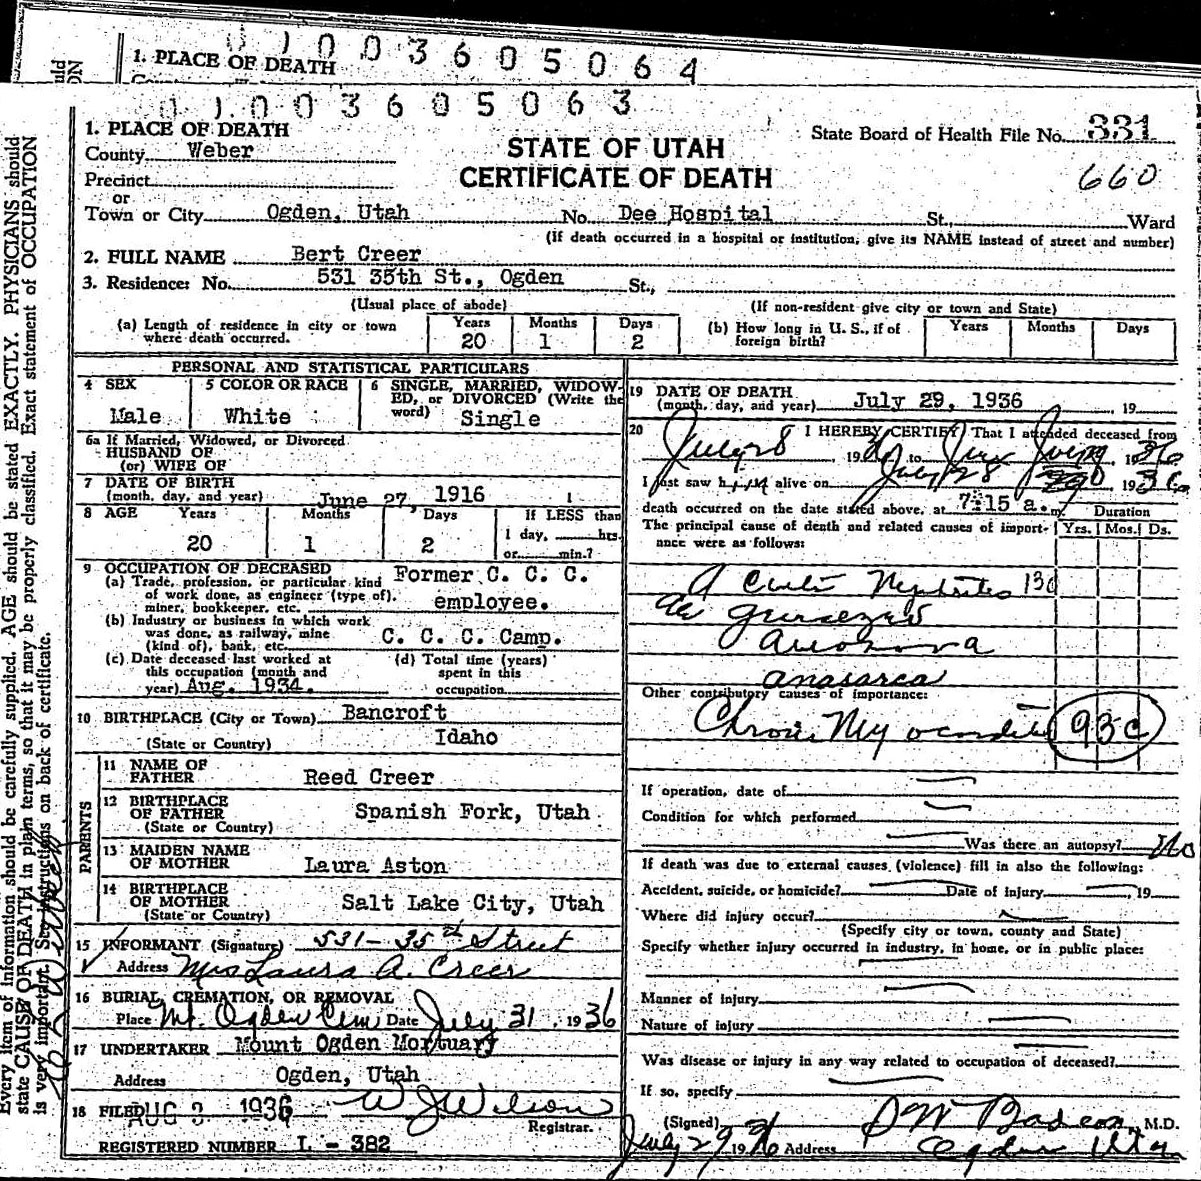 01003605064
1. PLACE OF DEATH
01003605063
1. PLACE OF DEATH
County Weber
STATE OF UTAH
CERTIFICATE OF DEATH
State Board of Health File No. 331
660
Precinct
or
Town or City Ogden, Utah No. Dee Hospital St., Ward
(If death occurred in a hospital or institution, give its NAME instead of street and number)
2. FULL NAME Bert Creer
3. Residence: No. 531 35th St., Ogden St.,
(Usual place of abode) (If non-resident give city or town and State)
(a) Length of residence in city or town where death occurred. Years 20 Months 1 Days 2
(b) How long in U. S., if of foreign birth? Years Months Days
PERSONAL AND STATISTICAL PARTICULARS
4 SEX Male
5 COLOR OR RACE White
6 SINGLE, MARRIED, WIDOWED, or DIVORCED (Write the word) Single
6a If Married, Widowed, or Divorced
HUSBAND OF
(or) WIFE OF
7 DATE OF BIRTH
(month, day, and year) June 27, 1916
8 AGE Years 20 Months 1 Days 2 If LESS than 1 day, hrs. or min.?
9 OCCUPATION OF DECEASED
(a) Trade, profession, or particular kind of work done, as engineer (type of), miner, bookkeeper, etc. Former C. C. C. employee.
(b) Industry or business in which work was done, as railway, mine (kind of), bank, etc. C. C. C. Camp.
(c) Date deceased last worked at this occupation (month and year) Aug. 1934.
(d) Total time (years) spent in this occupation
10 BIRTHPLACE (City or Town) Bancroft
(State or Country) Idaho
PARENTS
11 NAME OF FATHER Reed Creer
12 BIRTHPLACE OF FATHER (State or Country) Spanish Fork, Utah
13 MAIDEN NAME OF MOTHER Laura Aston
14 BIRTHPLACE OF MOTHER (State or Country) Salt Lake City, Utah
15 INFORMANT (Signature) 531-35th Street
Address Mrs Laura A. Creer
16 BURIAL, CREMATION, OR REMOVAL
Place Mt. Ogden Cem Date July 31, 1936
17 UNDERTAKER Mount Ogden Mortuary
Address Ogden, Utah
18 FILED AUG 3 1936 W J Wilson
Registrar.
REGISTERED NUMBER L - 382
19 DATE OF DEATH
(month, day, and year) July 29, 1936, 19
20 I HEREBY CERTIFY That I attended deceased from
July 28, 1936 to 1936
I last saw him alive on July 28 1936
death occurred on the date stated above, at 7:15 a.m. Duration
The principal cause of death and related causes of importance were as follows: Yrs. Mos. Ds.
Acute Nephritis 130
anasarca
Other contributory causes of importance:
Chronic Myocarditis 93c
If operation, date of
Condition for which performed
Was there an autopsy? No
If death was due to external causes (violence) fill in also the following:
Accident, suicide, or homicide? Date of injury 19
Where did injury occur?
(Specify city or town, county and State)
Specify whether injury occurred in industry, in home, or in public place:
Manner of injury
Nature of injury
Was disease or injury in any way related to occupation of deceased?
If so, specify
(Signed) M.D.
July 29 1936 Address Ogden Utah
Every item of information should be carefully supplied. AGE should be stated EXACTLY. PHYSICIANS should
state CAUSE OF DEATH in plain terms, so that it may be properly classified. Exact statement of OCCUPATION
is very important. See instructions on back of certificate.